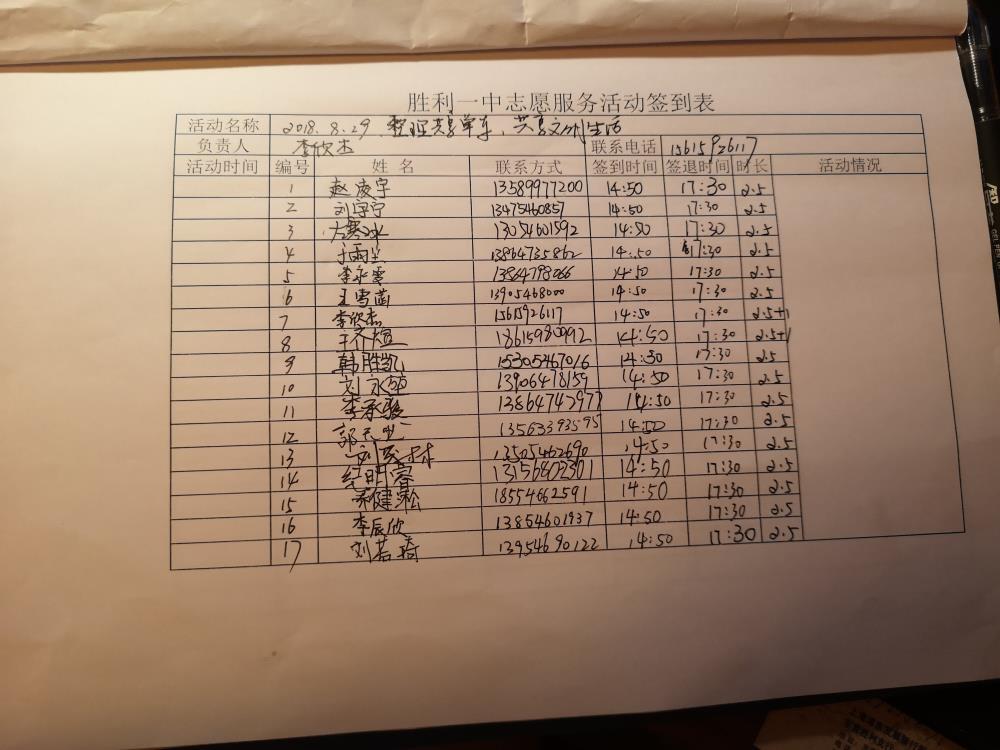 胜利一中志愿服务活动签到表
活动名称 2018.8.29 整理共享单车、共享文明生活
负责人 李欣杰 联系电话 15615926117
活动时间 编号 姓名 联系方式 签到时间 签退时间 时长 活动情况
1 赵凌宇 13589977200 14:50 17:30 2.5
2 刘宇宁 13475460857 14:50 17:30 2.5
3 方寒冰 13054601592 14:50 17:30 2.5
4 于雨尘 13864735862 14:50 17:30 2.5
5 李永雯 14:50 17:30 2.5
6 王雪菡 13905468000 14:50 17:30 2.5
7 李欣杰 15615926117 14:50 17:30 2.5+1
8 18615980992 14:50 17:30 2.5+1
9 韩胜凯 15305467016 14:30 17:30 2.5
10 刘永 13906478159 14:50 17:30 2.5
11 李承骏 13864747977 14:50 17:30 2.5
12 郭 13563393595 14:50 17:30 2.5
13 刘 13505462690 14:50 17:30 2.5
14 明睿 13156802301 14:50 17:30 2.5
15 健淞 18554662591 14:50 17:30 2.5
16 李辰欣 13854601937 14:50 17:30 2.5
17 刘若琦 13954690122 14:50 17:30 2.5